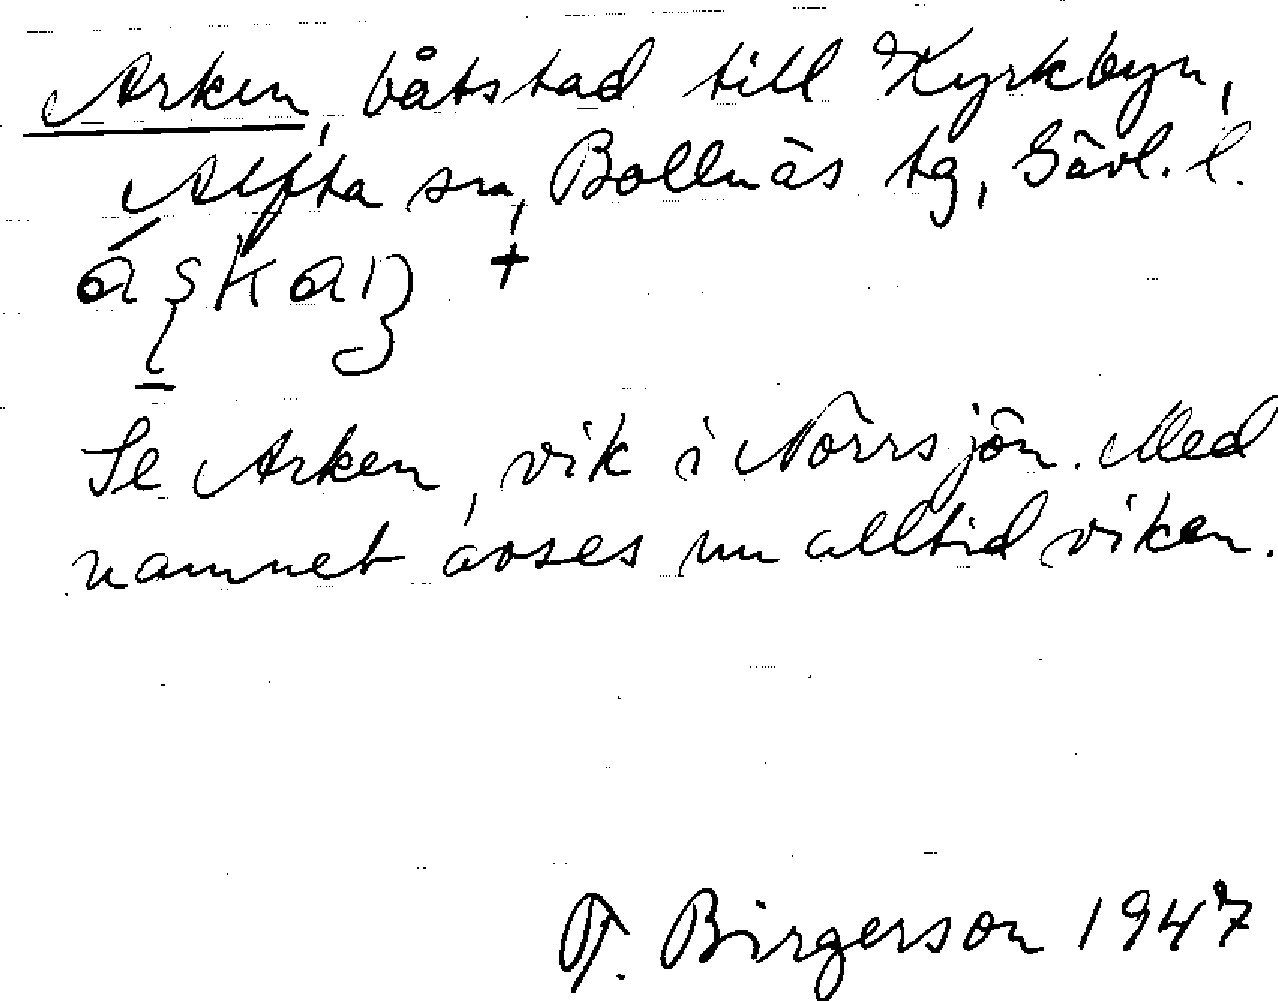 Arken, båtstad till Kyrkbyn,
Alfta sn, Bollnäs tg, Gävl. l.
+
Se Arken, vik i Norrsjön. Med
namnet avses nu alltid viken.
T. Birgerson 1947